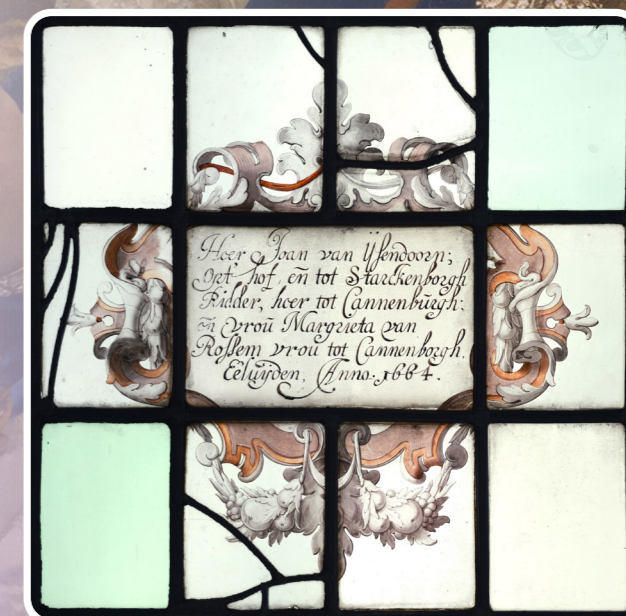 Heer Joan van Ysendoorn;
opt hof, en̄ tot Starckenborgh
Ridder, heer tot Cannenburgh:
en̄ vroŭ Margrieta van
Rossem vroŭ tot Cannenborgh.
Eeluijden, Anno. 1664.